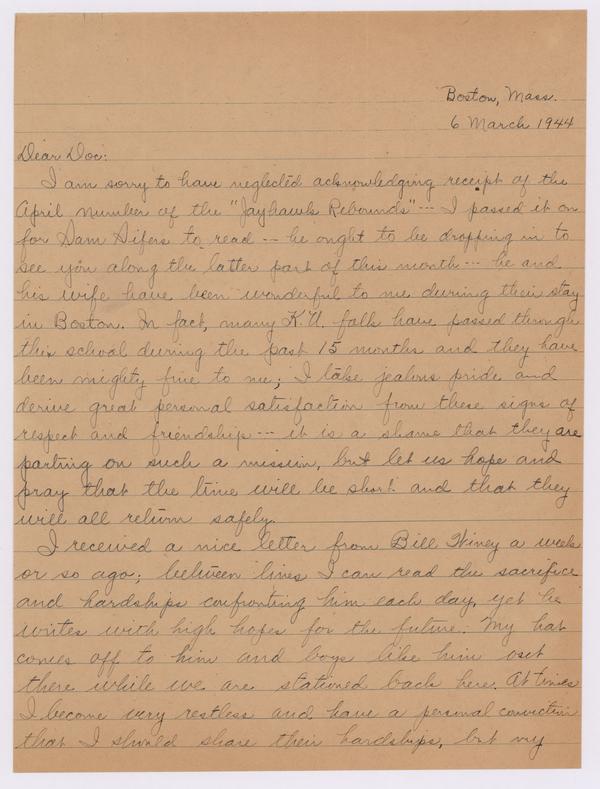 Boston, Mass.
6 March 1944
Dear Doc:
I am sorry to have neglected acknowledging receipt of the
April number of the "Jayhawk Rebounds" --- I passed it on
for Sam Sifers to read --- he ought to be dropping in to
see you along the latter part of this month --- he and
his wife have been wonderful to me during their stay
in Boston. In fact, many K.U. folk have passed through
this school during the past 15 months and they have
been mighty fine to me; I take jealous pride and
derive great personal satisfaction from these signs of
respect and friendship --- it is a shame that they are
parting on such a mission, but let us hope and
pray that the time will be short and that they
will all return safely.
I received a nice letter from Bill Winey a week
or so ago; between lines I can read the sacrifice
and hardships confronting him each day, yet he
writes with high hopes for the future. My hat
comes off to him and boys like him out
there while we are stationed back here. At times
I become very restless and have a personal conviction
that I should share their hardships, but my